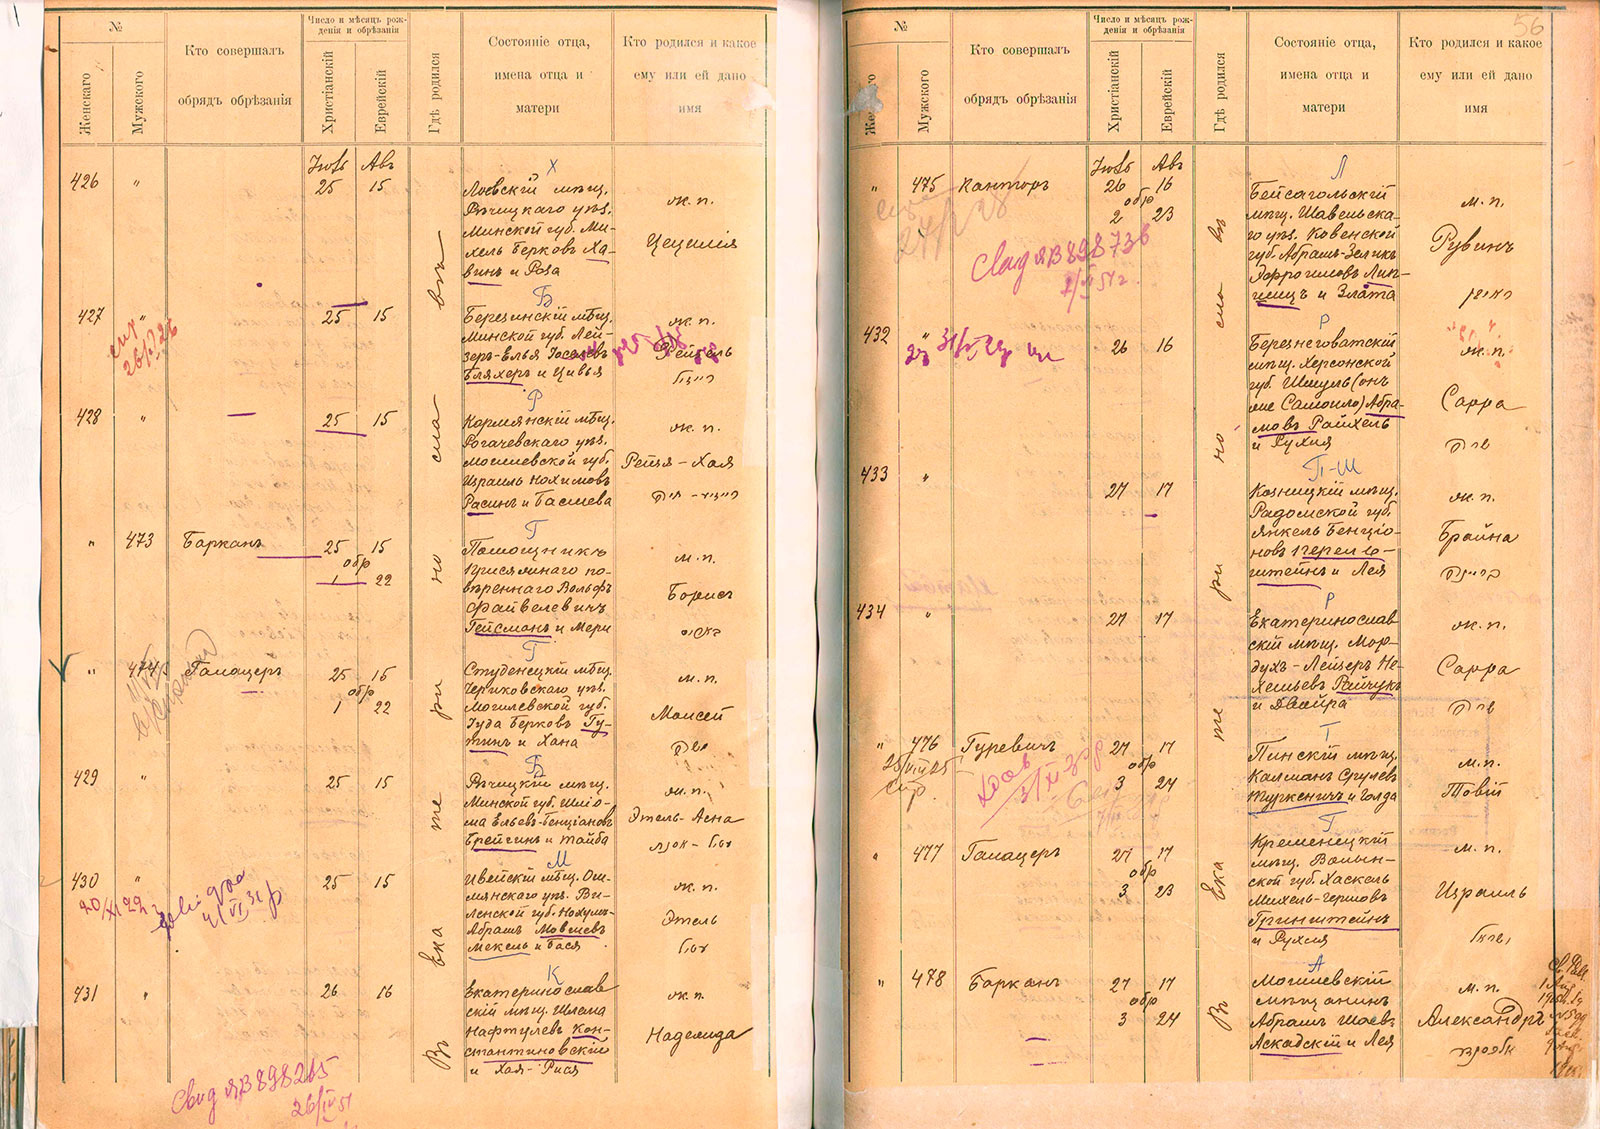 №
Женскаго
Мужского
Кто совершалъ
обрядъ обрѣзанія
Число и мѣсяцъ рож-
денія и обрѣзанія
Христіанскій
Еврейскій
Гдѣ родился
Состояніе отца,
имена отца и
матери
Кто родился и какое
ему или ей дано
имя
Въ Екатеринославѣ
Іюль Авъ
426 " 25 15
Х
Лоевскій мѣщ.
Рѣчицкаго уѣз.
Минской губ. Ми-
хель Берковъ Ха-
винъ и Роза
ж. п.
Цецилія
427 " 25 15
Б
Березинскій мѣщ.
Минской губ. Лей-
зеръ-Елья Іоселевъ
Бляхеръ и Цивья
ж. п.
Рейзель
428 " 25 15
Р
Кормянскій мѣщ.
Рогачевскаго уѣз.
Могилевской губ.
Израиль Нохимовъ
Расинъ и Басшева
ж. п.
Рейзя-Хая
" 473 Барканъ 25 15
обр
1 22
Г
Помощникъ
Присяжнаго по-
вѣреннаго Вольфъ
Файвелевичъ
Гейсманъ и Мери
м. п.
Борисъ
" 474 Галацеръ 25 15
обр
1 22
Г
Студенецкій мѣщ.
Чериковскаго уѣз.
Могилевской губ.
Іуда Берковъ Гу-
тинъ и Хана
м. п.
Моисей
משה
429 " 25 15
Б
Рѣчицкій мѣщ.
Минской губ. Шлio-
ма Ельевъ-Бенціановъ
Брейгинъ и Тайба
ж. п.
Этель-Асна
430 " 25 15
М
Ивейскій мѣщ. Ош-
мянскаго уѣз. Ви-
ленской губ. Нохумъ-
Абрамъ Мовшевъ
Мекель и Бася
ж. п.
Этель
431 " 26 16
К
Екатеринослав-
скій мѣщ. Шлема
Нафтулевъ Кон-
стантиновскій
и Хая-Рися
ж. п.
Надежда
Свид ЯВ 898265
26/IV 51
56
№
Женскаго
Мужского
Кто совершалъ
обрядъ обрѣзанія
Число и мѣсяцъ рож-
денія и обрѣзанія
Христіанскій
Еврейскій
Гдѣ родился
Состояніе отца,
имена отца и
матери
Кто родился и какое
ему или ей дано
имя
Въ Екатеринославѣ
Іюль Авъ
" 475 Канторъ 26 16
обр
2 23
Свид ЯВ 898736
Л
Бейсагольскій
мѣщ. Шавельска-
го уѣз. Ковенской
губ. Абрамъ-Зеликъ
Эфроимовъ Лип-
шицъ и Злата
м. п.
Рувинъ
ראובן
432 " 26 16
Р
Березнеговатскій
мѣщ. Херсонской
губ. Шмуль (онъ
же Самоило) Абра-
мовъ Райхель
и Рухля
ж. п.
Сарра
שרה
433 " 27 17
П-Ш
Козницкій мѣщ.
Радомской губ.
Янкель Бенціо-
новъ Перель-
штейнъ и Лея
ж. п.
Брайна
בריינה
434 " 27 17
Р
Екатеринослав-
скій мѣщ. Мор-
духъ-Лейзеръ Не-
хемьевъ Райчукъ
и Двейра
ж. п.
Сарра
שרה
" 476 Гуревичъ 27 17
обр
3 24
Т
Пинскій мѣщ.
Калманъ Срулевъ
Туркеничъ и Голда
м. п.
Товій
" 477 Галацеръ 27 17
обр
3 23
Г
Кременецкій
мѣщ. Волын-
ской губ. Хаскель
Михель-Гершовъ
Гринштейнъ
и Рухля
м. п.
Израиль
ישראל
" 478 Барканъ 27 17
обр
3 24
А
Могилевскій
мѣщанинъ
Абрамъ Шаевъ
Аскадскій и Лея
м. п.
Александръ